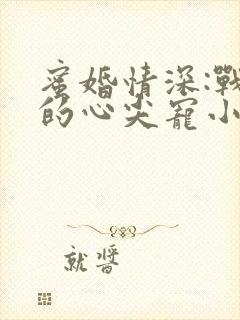 蜜婚情深:戰
的心尖寵小
就醬